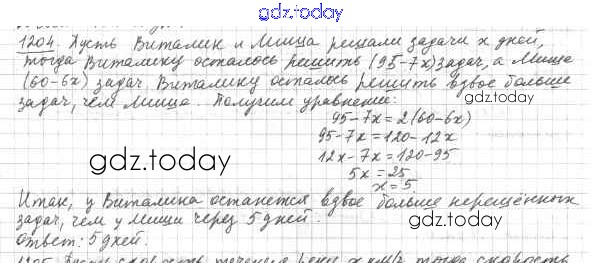 gdz.today
1204. Пусть Виталик и Миша решали задачи x дней,
тогда Виталику осталось решить (95-7x) задач, а Мише
(60-6x) задач. Виталику осталось решить вдвое больше
задач, чем Мише. Получим уравнение:
95-7x=2(60-6x)
gdz.today
95-7x=120-12x
gdz.today
12x-7x=120-95
5x=25
x=5
Итак, у Виталика останется вдвое больше нерешённых
задач, чем у Миши через 5 дней.
gdz.today
Ответ: 5 дней.
1205. Пусть скорость течения реки x км/ч, тогда скорость